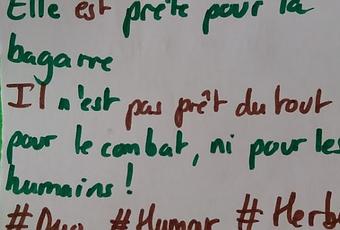 Elle est prête pour la
bagarre
Il n'est pas prêt du tout
pour le combat, ni pour les
humains !
#Duo #Humor #Herb